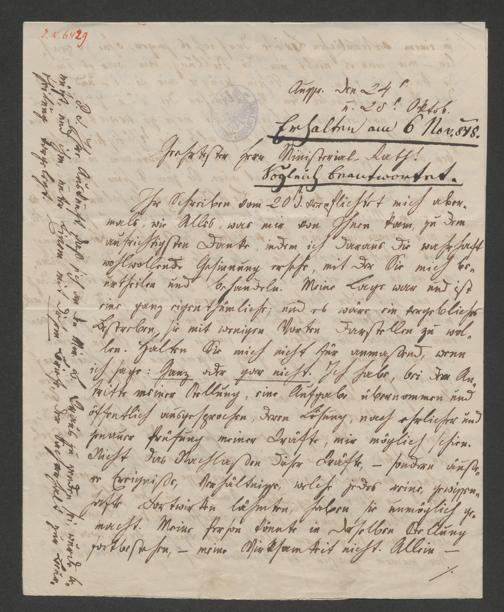 J. N. 6429
Augsb. den 24t
u. 25t. Oktob.
Erhalten am 6 Nov. 848.
Geehrtester Herr Ministerial-Rath!
Sogleich beantwortet.
Ihr Schreiben vom 20 d. verpflichtet mich aber-
mals, wie Alles was mir von Ihnen kam, zu dem
aufrichtigsten Danke indem ich daraus die wahrhaft
wohlwollende Gesinnung ersehe, mit der Sie mich be-
urtheilen und behandeln. Meine Lage war und ist
eine ganz eigenthümliche; und es wäre ein vergebliches
Bestreben, sie mit wenigen Worten darstellen zu wol-
len. Halten Sie mich nicht für anmaßend, wenn
ich sage: Ganz oder gar nicht. Ich habe, bei dem An-
tritte meiner Stellung, eine Aufgabe übernommen und
öffentlich ausgesprochen, deren Lösung, nach ehrlicher und
genauer Prüfung meiner Kräfte, mir möglich schien.
Nicht das Nachlaßen dieser Kräfte, – sondern äuß-
re Ereigniße, Verhältniße, welche jedes reine, gewißen-
hafte Fortwirken lähmten, haben sie unmöglich ge-
macht. Meine Person könnte in derselben Stellung
fortbestehen, – meine Wirksamkeit nicht. Allein –